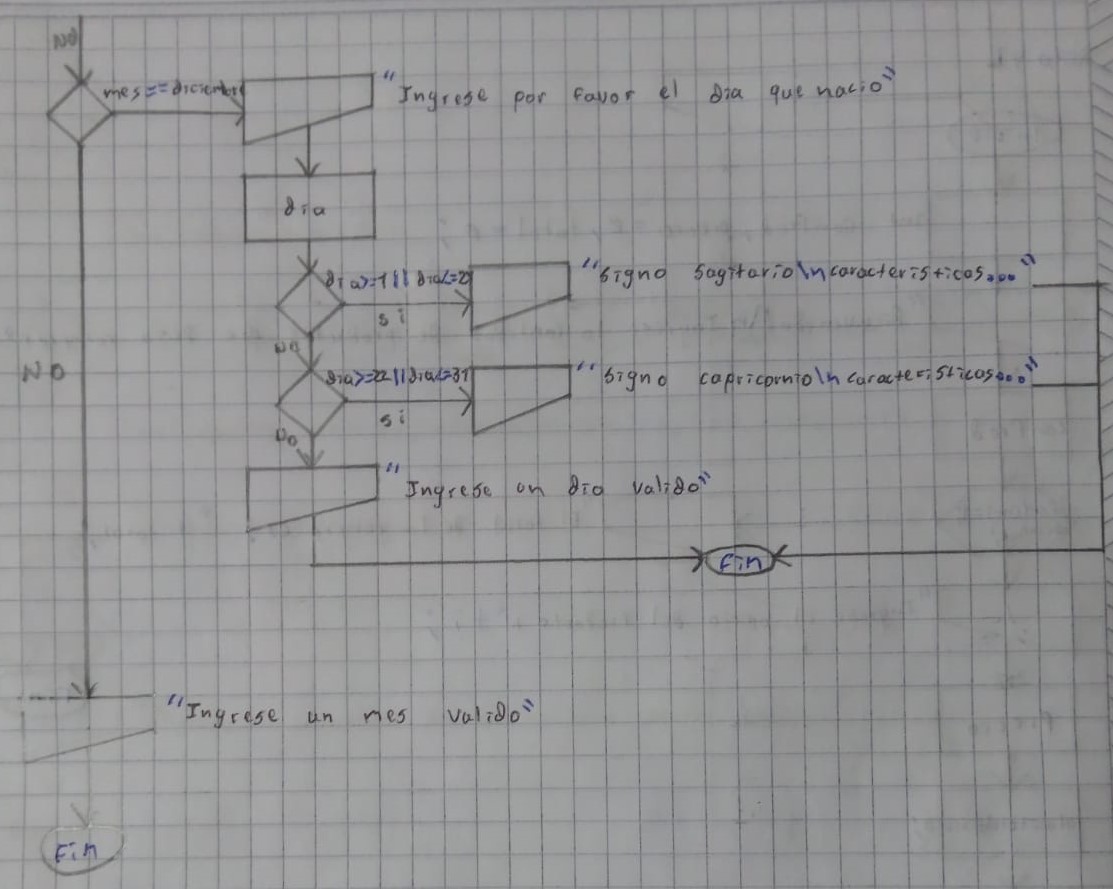 NO
mes==diciembre
"Ingrese por favor el dia que nacio"
dia
dia>=1 || dia<=21
"signo sagitario\ncaracteristicas..."
si
NO
dia>=22||dia<=31
"signo capricornio\ncaracteristicas..."
NO
si
no
"Ingrese un dio valido"
Fin
"Ingrese un mes valido"
Fin